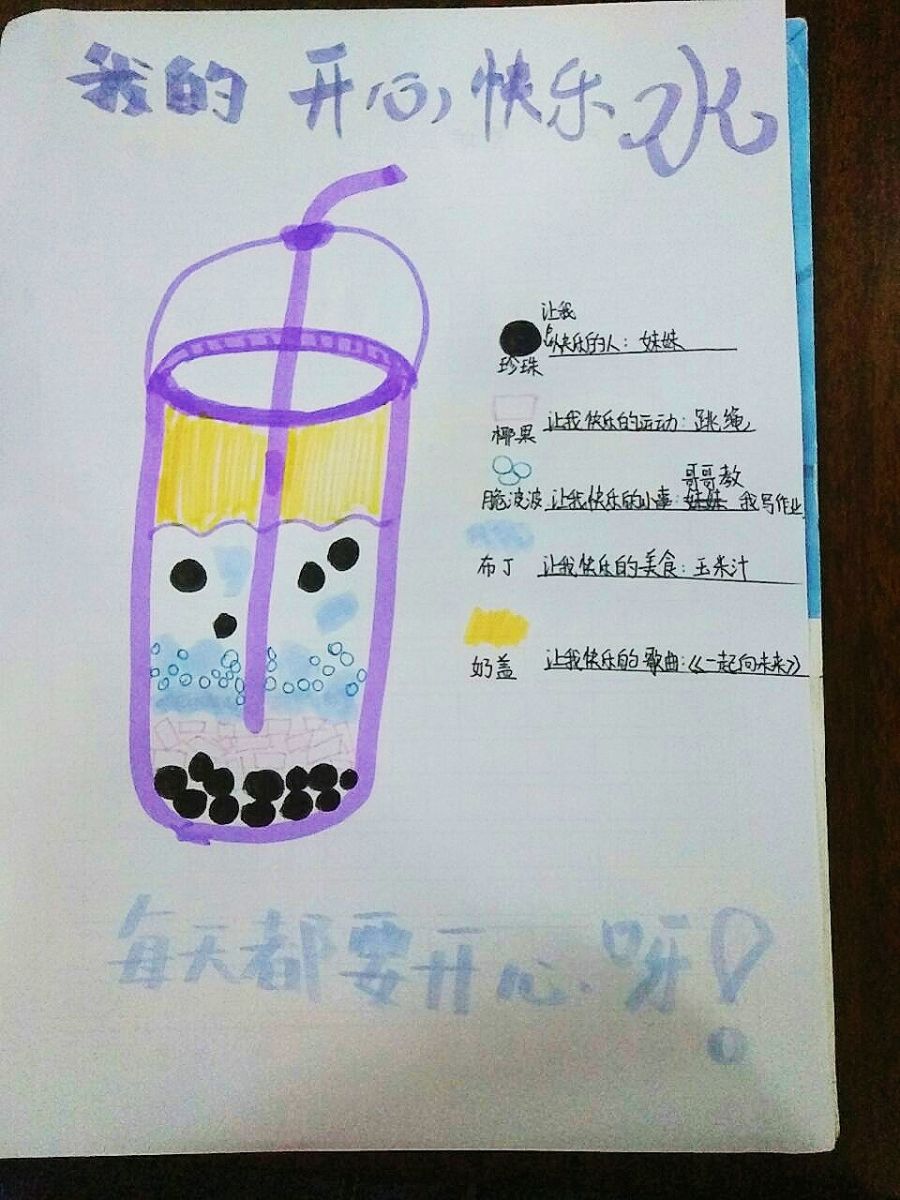 我的 开心快乐水
让我
快乐的人：妹妹
珍珠
让我快乐的运动：跳绳
椰果
哥哥教
脆波波 让我快乐的小事：我写作业
布丁 让我快乐的美食：玉米汁
奶盖 让我快乐的歌曲：《一起向未来》
每天都要开心呀！